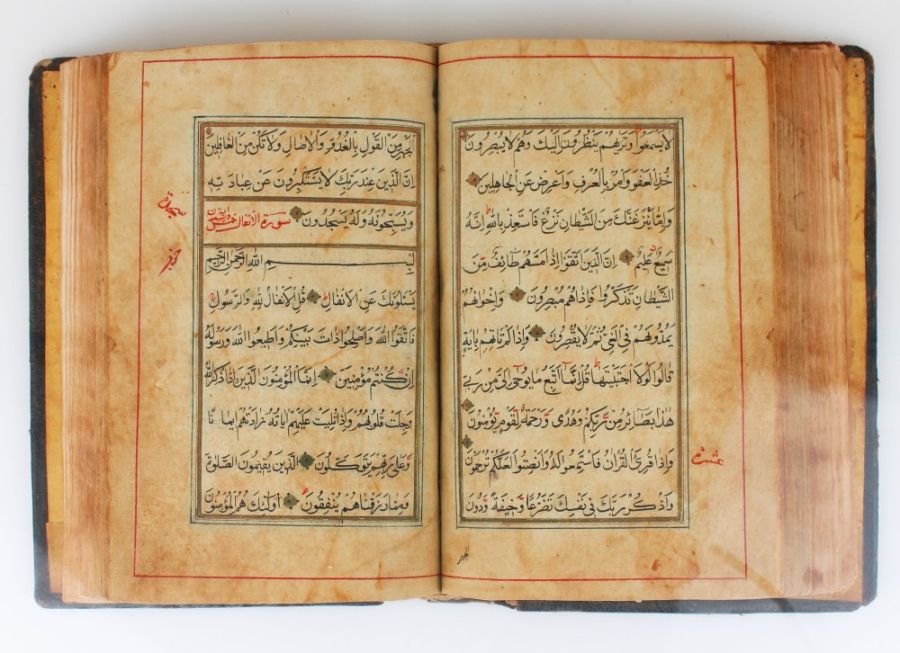 لا يسمعوا وتريهم ينظرون اليك وهم لا يبصرون
خذ العفو وامر بالعرف واعرض عن الجاهلين
واما ينزغنك من الشيطان نزغ فاستعذ بالله انه
سميع عليم ان الذين اتقوا اذا مسهم طائف من
الشيطان تذكروا فاذا هم مبصرون واخوانهم
يمدونهم في الغي ثم لا يقصرون واذا لم تاتهم باية
قالوا لولا اجتبيتها قل انما اتبع ما يوحى الي من ربي
هذا بصائر من ربكم وهدى ورحمة لقوم يؤمنون
واذا قرئ القران فاستمعوا له وانصتوا لعلكم ترحمون
واذكر ربك في نفسك تضرعا وخيفة ودون
عشر
الجهر
الجهر من القول بالغدو والاصال ولا تكن من الغافلين
ان الذين عند ربك لا يستكبرون عن عبادته
ويسبحونه وله يسجدون سورة الانفال
بسم الله الرحمن الرحيم
يسئلونك عن الانفال قل الانفال لله والرسول
فاتقوا الله واصلحوا ذات بينكم واطيعوا الله ورسوله
ان كنتم مؤمنين انما المؤمنون الذين اذا ذكر الله
وجلت قلوبهم واذا تليت عليهم اياته زادتهم ايمانا
وعلى ربهم يتوكلون الذين يقيمون الصلوة
ومما رزقناهم ينفقون اولئك هم المؤمنون
سجدة